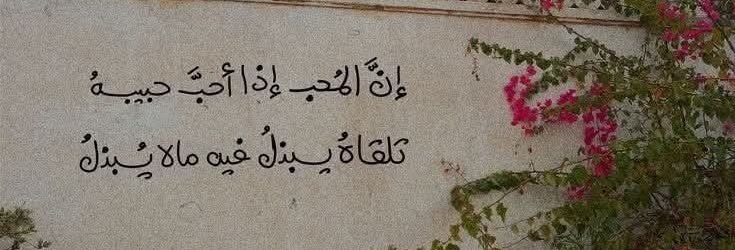 إنَّ المُحب إذا أحبَّ حبيبهُ
تلقاهُ يبذلُ فيه مالا يُبذلُ